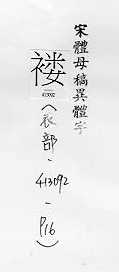 宋體母稿異體字
褛
413092
(衣部-413092-P16)